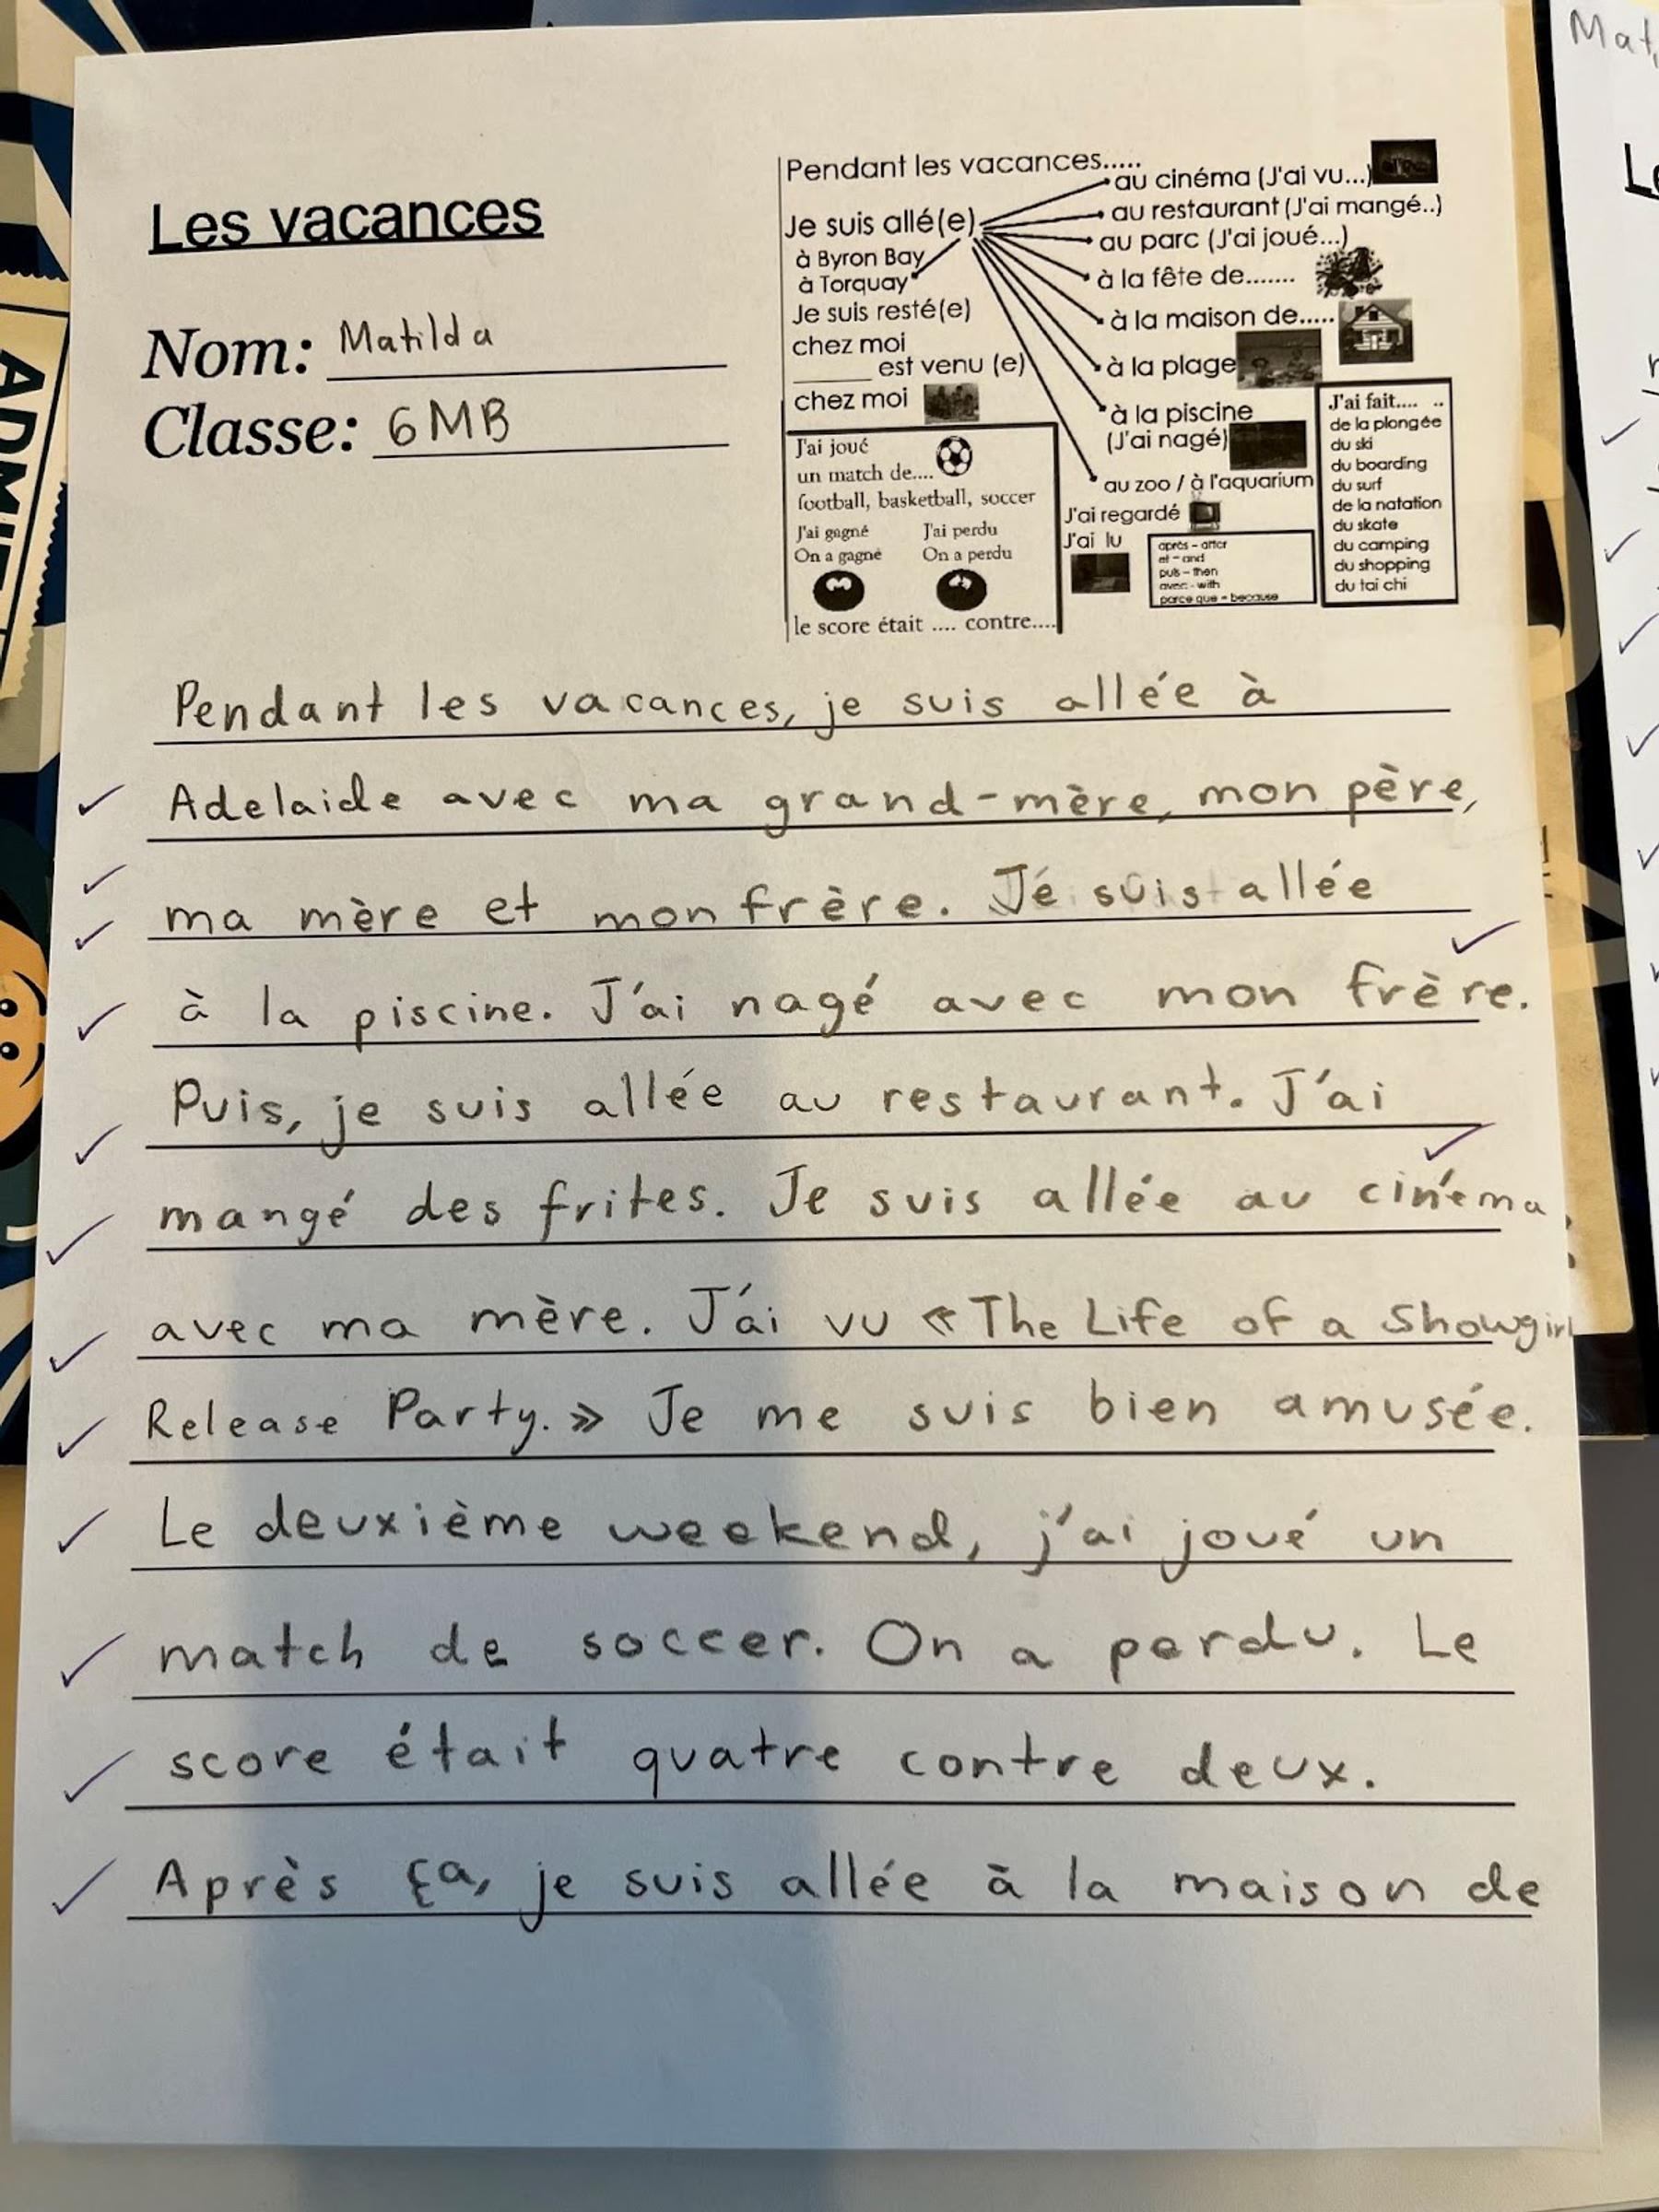 Mat
Les vacances
Nom: Matilda
Classe: 6MB
Pendant les vacances.....
au cinéma (J'ai vu...)
Je suis allé(e)
au restaurant (J'ai mangé..)
au parc (J'ai joué...)
à Byron Bay
à Torquay
à la fête de.......
Je suis resté(e)
chez moi
à la maison de.....
______ est venu (e)
chez moi
à la plage
à la piscine
(J'ai nagé)
au zoo / à l'aquarium
J'ai fait.... ..
de la plongée
du ski
du boarding
du surf
de la natation
du skate
du camping
du shopping
du tai chi
J'ai joué
un match de....
football, basketball, soccer
J'ai gagné J'ai perdu
On a gagné On a perdu
le score était .... contre....
J'ai regardé
J'ai lu
après - after
et - and
puis - then
avec - with
parce que - because
Pendant les vacances, je suis allée à
Adelaide avec ma grand-mère, mon père,
ma mère et mon frère. Je suis allée
à la piscine. J'ai nagé avec mon frère.
Puis, je suis allée au restaurant. J'ai
mangé des frites. Je suis allée au cinéma
avec ma mère. J'ai vu « The Life of a Showgirl
Release Party. » Je me suis bien amusée.
Le deuxième weekend, j'ai joué un
match de soccer. On a perdu. Le
score était quatre contre deux.
Après ça, je suis allée à la maison de